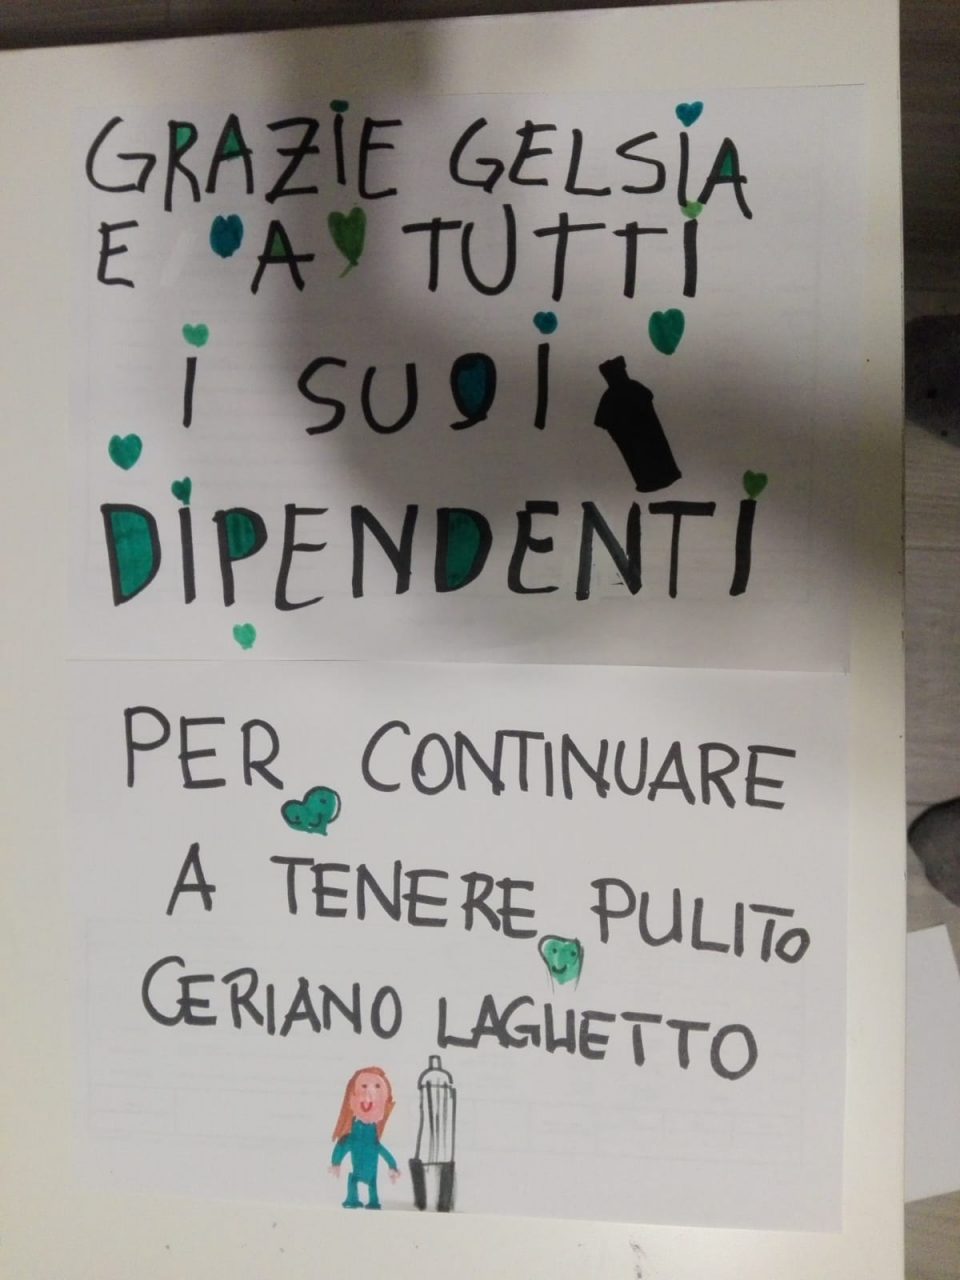 GRAZIE GELSIA
E A TUTTI
I SUOI
DIPENDENTI
PER CONTINUARE
A TENERE PULITO
CERIANO LAGHETTO